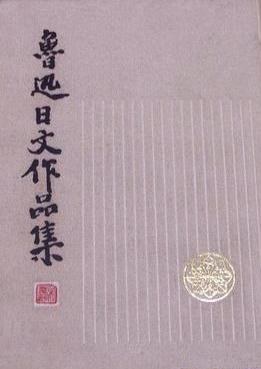 魯迅日文作品集